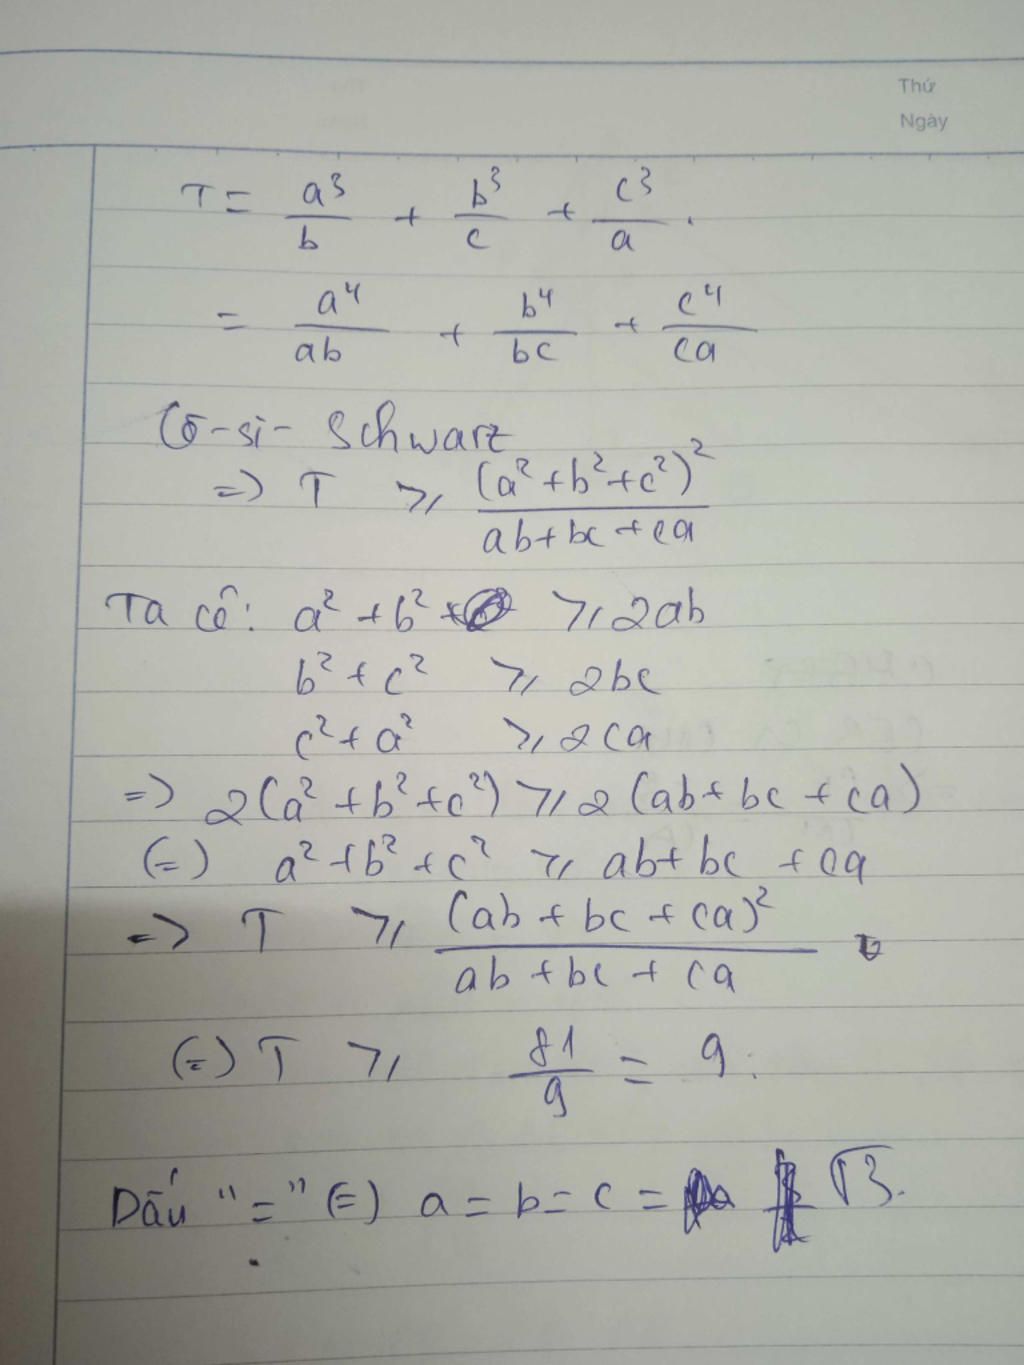 Thứ
Ngày
T = a³/b + b³/c + c³/a .
= a⁴/ab + b⁴/bc + c⁴/ca
Cô-si- Schwarz
=> T ⩾ (a² + b² + c²)²/ab + bc + ca
Ta cê: a² + b² + ⩾ 2ab
b² + c² ⩾ 2bc
c² + a² ⩾ 2ca
=> 2(a² + b² + c²) ⩾ 2 (ab + bc + ca)
(=) a² + b² + c² ⩾ ab + bc + ca
=> T ⩾ (ab + bc + ca)²/ab + bc + ca
(=) T ⩾ 81/9 = 9.
Dấu "=" (=) a = b = c = √3.